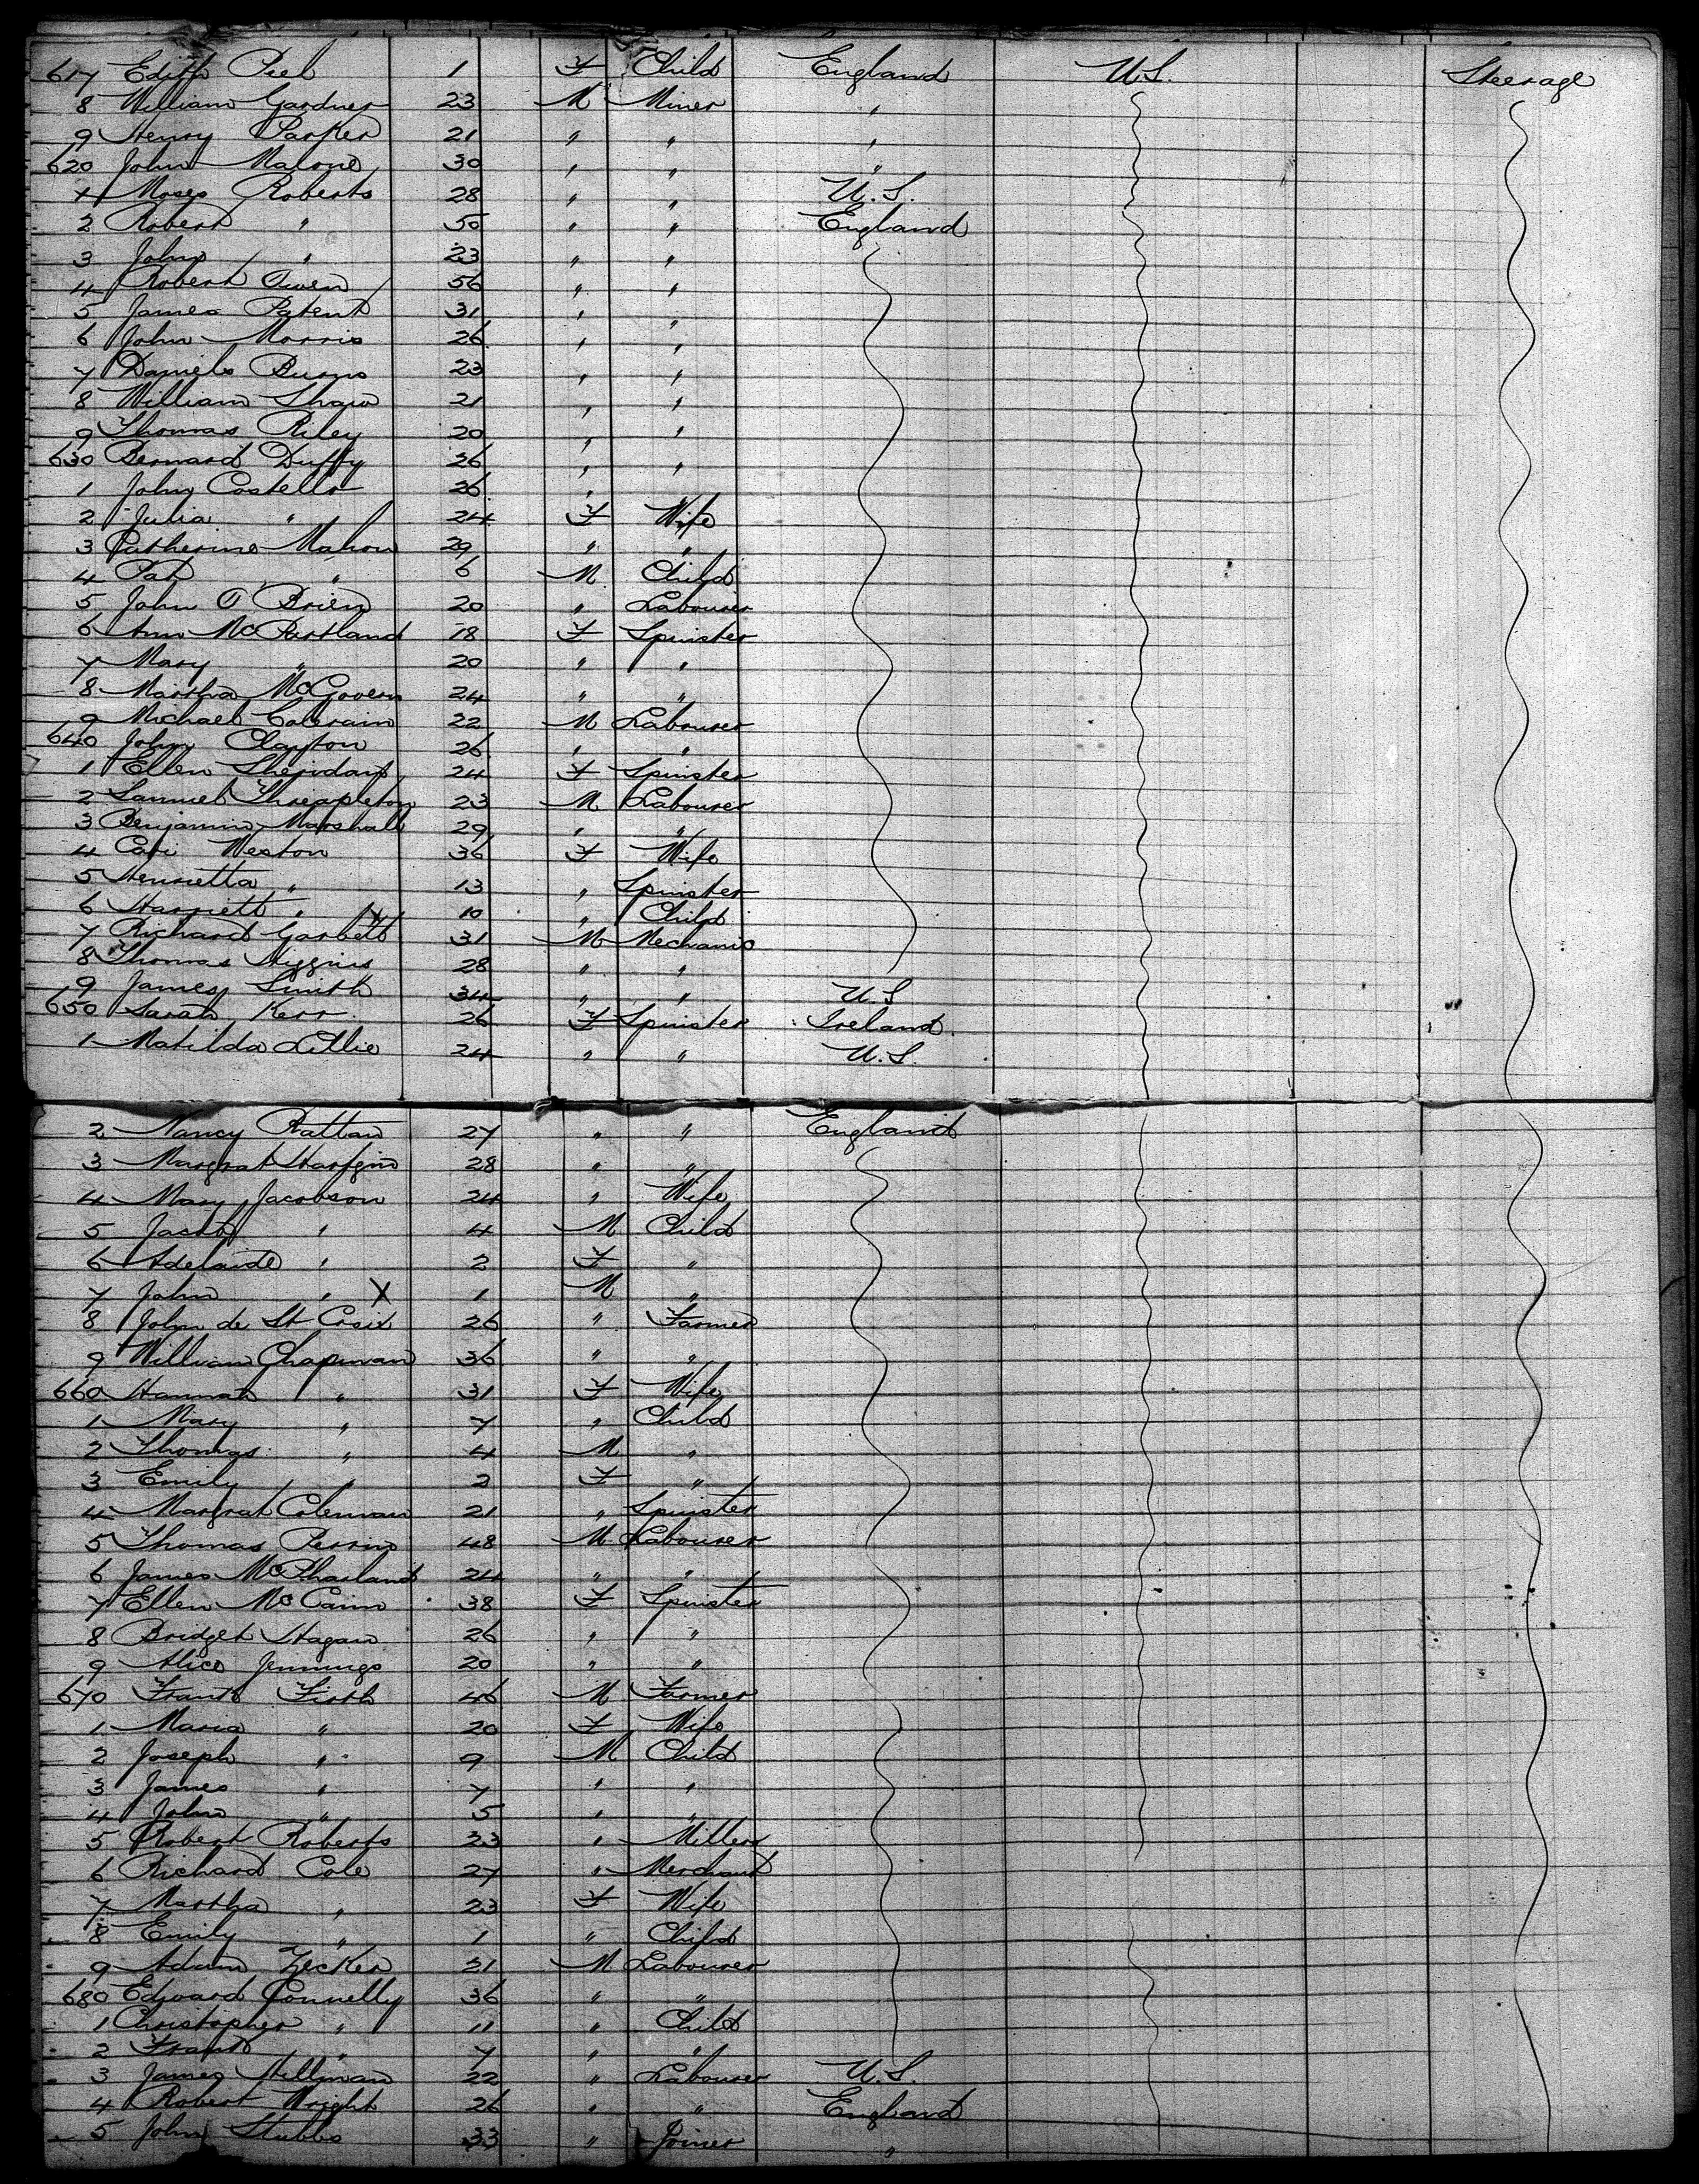 617 Edith Peel 1 F Child England U.S. Steerage
8 William Gardner 23 M Miner "
9 Henry Parker 21 " " "
620 John Malone 30 " " "
1 Moses Roberts 28 " " U.S.
2 Robert " 50 " " England
3 John " 23 " "
4 Robert Owen 56 " "
5 James Patent 31 " "
6 John Morris 26 " "
7 Daniel Burns 23 " "
8 William Shaw 21 " "
9 Thomas Riley 20 " "
630 Bernard Duffy 26 " "
1 John Costello 26 " "
2 Julia " 24 F Wife
3 Catherine Mahon 29 " "
4 Pat " 6 M Child
5 John O Brien 20 " Labourer
6 Ann McPartland 18 F Spinster
7 Mary " 20 " "
8 Martha McGovern 24 " "
9 Michael Colerain 22 M Labourer
640 John Clayton 26 " "
1 Ellen Sheridan 24 F Spinster
2 Samuel Threapleton 23 M Labourer
3 Benjamin Marshall 29 " "
4 Cari Weston 36 F Wife
5 Henrietta " 13 " Spinster
6 Harriett " X 10 " Child
7 Richard Garbett 31 M Mechanic
8 Thomas Higgins 28 " "
9 James Smith 34 " " U.S
650 Sarah Kerr 26 F Spinster Ireland
1 Matilda Lillie 24 " " U.S.
2 Nancy Rattan 27 " " England
3 Margrat 28 " "
4 Mary Jacobson 24 " Wife
5 Jacob " 4 M Child
6 Adelaide " 2 F "
7 John " X 1 M "
8 John de St Croix 26 " Farmer
9 William Chapman 36 " "
660 Hannah " 31 F Wife
1 Mary " 7 " Child
2 Thomas " 4 M "
3 Emily " 2 F "
4 Margrat Coleman 21 " Spinster
5 Thomas Perrin 48 M Labourer
6 James McPhailand 24 " "
7 Ellen McCann 38 F Spinster
8 Bridget Hagan 26 " "
9 Alice Jennings 20 " "
670 Frank Firth 46 M Farmer
1 Maria " 20 F Wife
2 Joseph " 9 M Child
3 James " 7 " "
4 John " 5 " "
5 Robert Roberts 23 " Miller
6 Richard Cole 27 " Merchant
7 Martha " 23 F Wife
8 Emily " 1 " Child
9 Adam Zecker 21 M Labourer
680 Edward Connelly 36 " "
1 Christopher " 11 " Child
2 Frank " 7 " "
3 James Hillman 22 " Labourer U.S.
4 Robert Wright 26 " " England
5 John Stubbs 33 " Joiner "